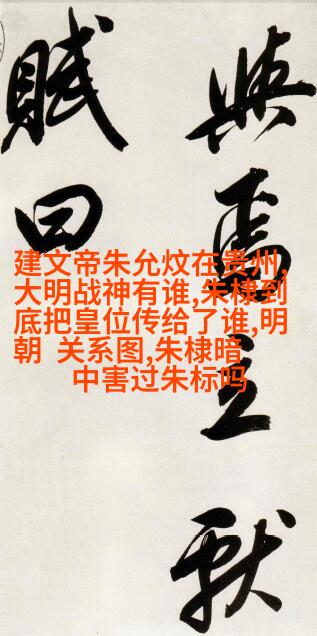 與焉立獻
賦曰
建文帝朱允炆在贵州,
大明战神有谁,朱棣到
底把皇位传给了谁,明
朝 关系图,朱棣暗
中害过朱标吗